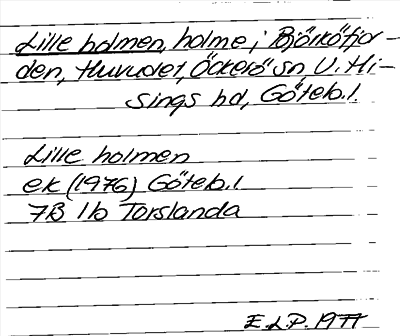 Lille holmen, holme, i Björköfjor-
den, Huvudet, Öckerö sn, V. Hi-
sings hd, Göteb. l.
Lille holmen
ek (1976) Göteb. l
7B 1b Torslanda
E. L. P. 1977